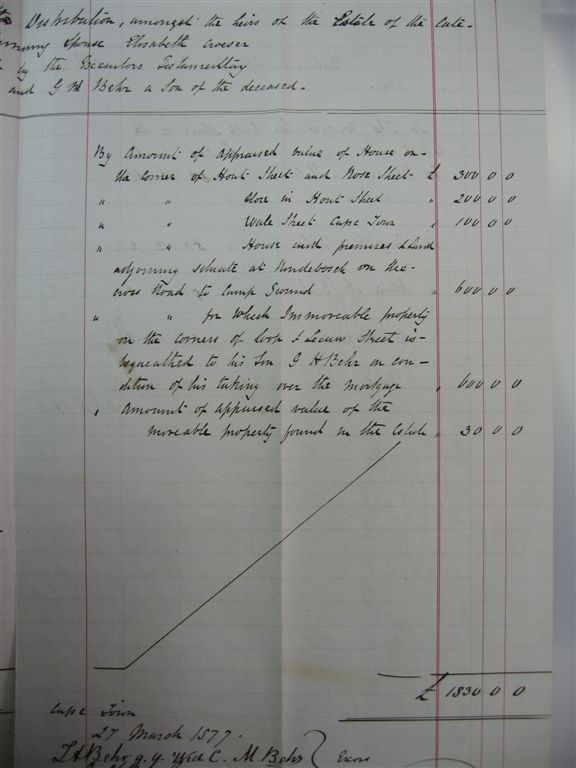 Distribution, amongst the heirs of the Estate of the late
Spouse Elisabeth Croeser
by the Executors Testamentary
and G H Behr a Son of the deceased.
By Amount of appraised value of House on
the corner of Hout Street and Rose Street £ 300 0 0
" " Store in Hout Street " 200 0 0
" " Wale Street Cape Town " 100 0 0
" " House and premises & Land
adjoining situate at Rondebosch on the
cross Road to Camp Ground " 600 0 0
" " for which Immoveable property
on the corners of Loop & Leeuw Street is
bequeathed to his Son G H Behr on con-
dition of his taking over the mortgage " 600 0 0
" Amount of appraised value of the
moveable property found in the Estate " 30 0 0
£ 1830 0 0
Cape Town
27 March 1877.
Behr q.q. Wed C. M Behr } Exors